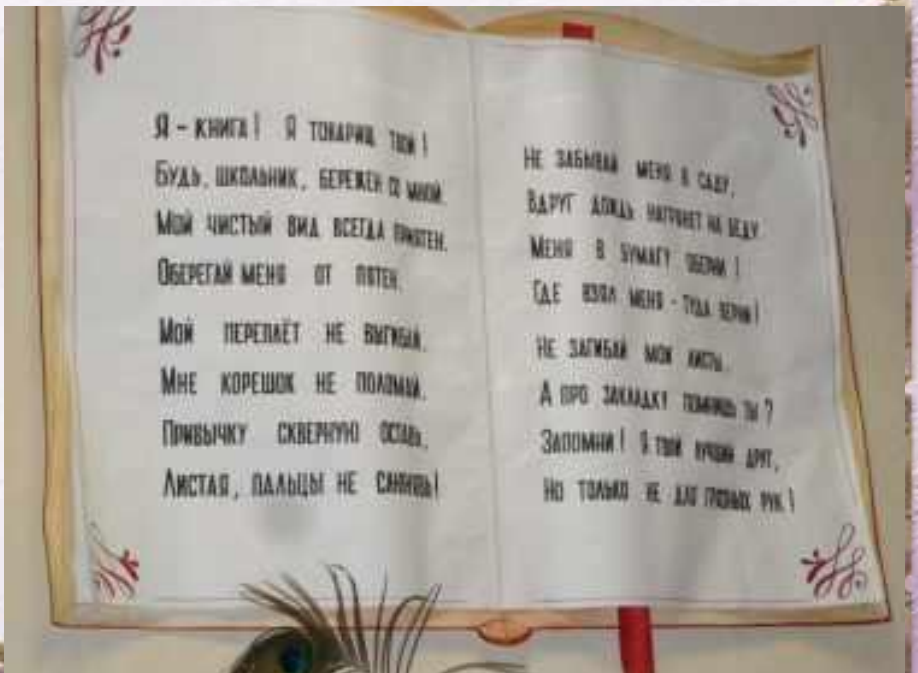 Я - книга! Я товарищ твой!
Будь, школьник, бережен со мной.
Мой чистый вид всегда приятен.
Оберегай меня от пятен.
Мой переплёт не выгибай.
Мне корешок не поломай.
Привычку скверную оставь,
Листая, пальцы не слюнявь!
Не забывай меня в саду,
Вдруг дождь нагрянет на беду.
Меня в бумагу оберни!
Где взял меня - туда верни!
Не загибай мои листы.
А про закладку помнишь ты?
Запомни! Я твой лучший друг,
Но только не для грязных рук!